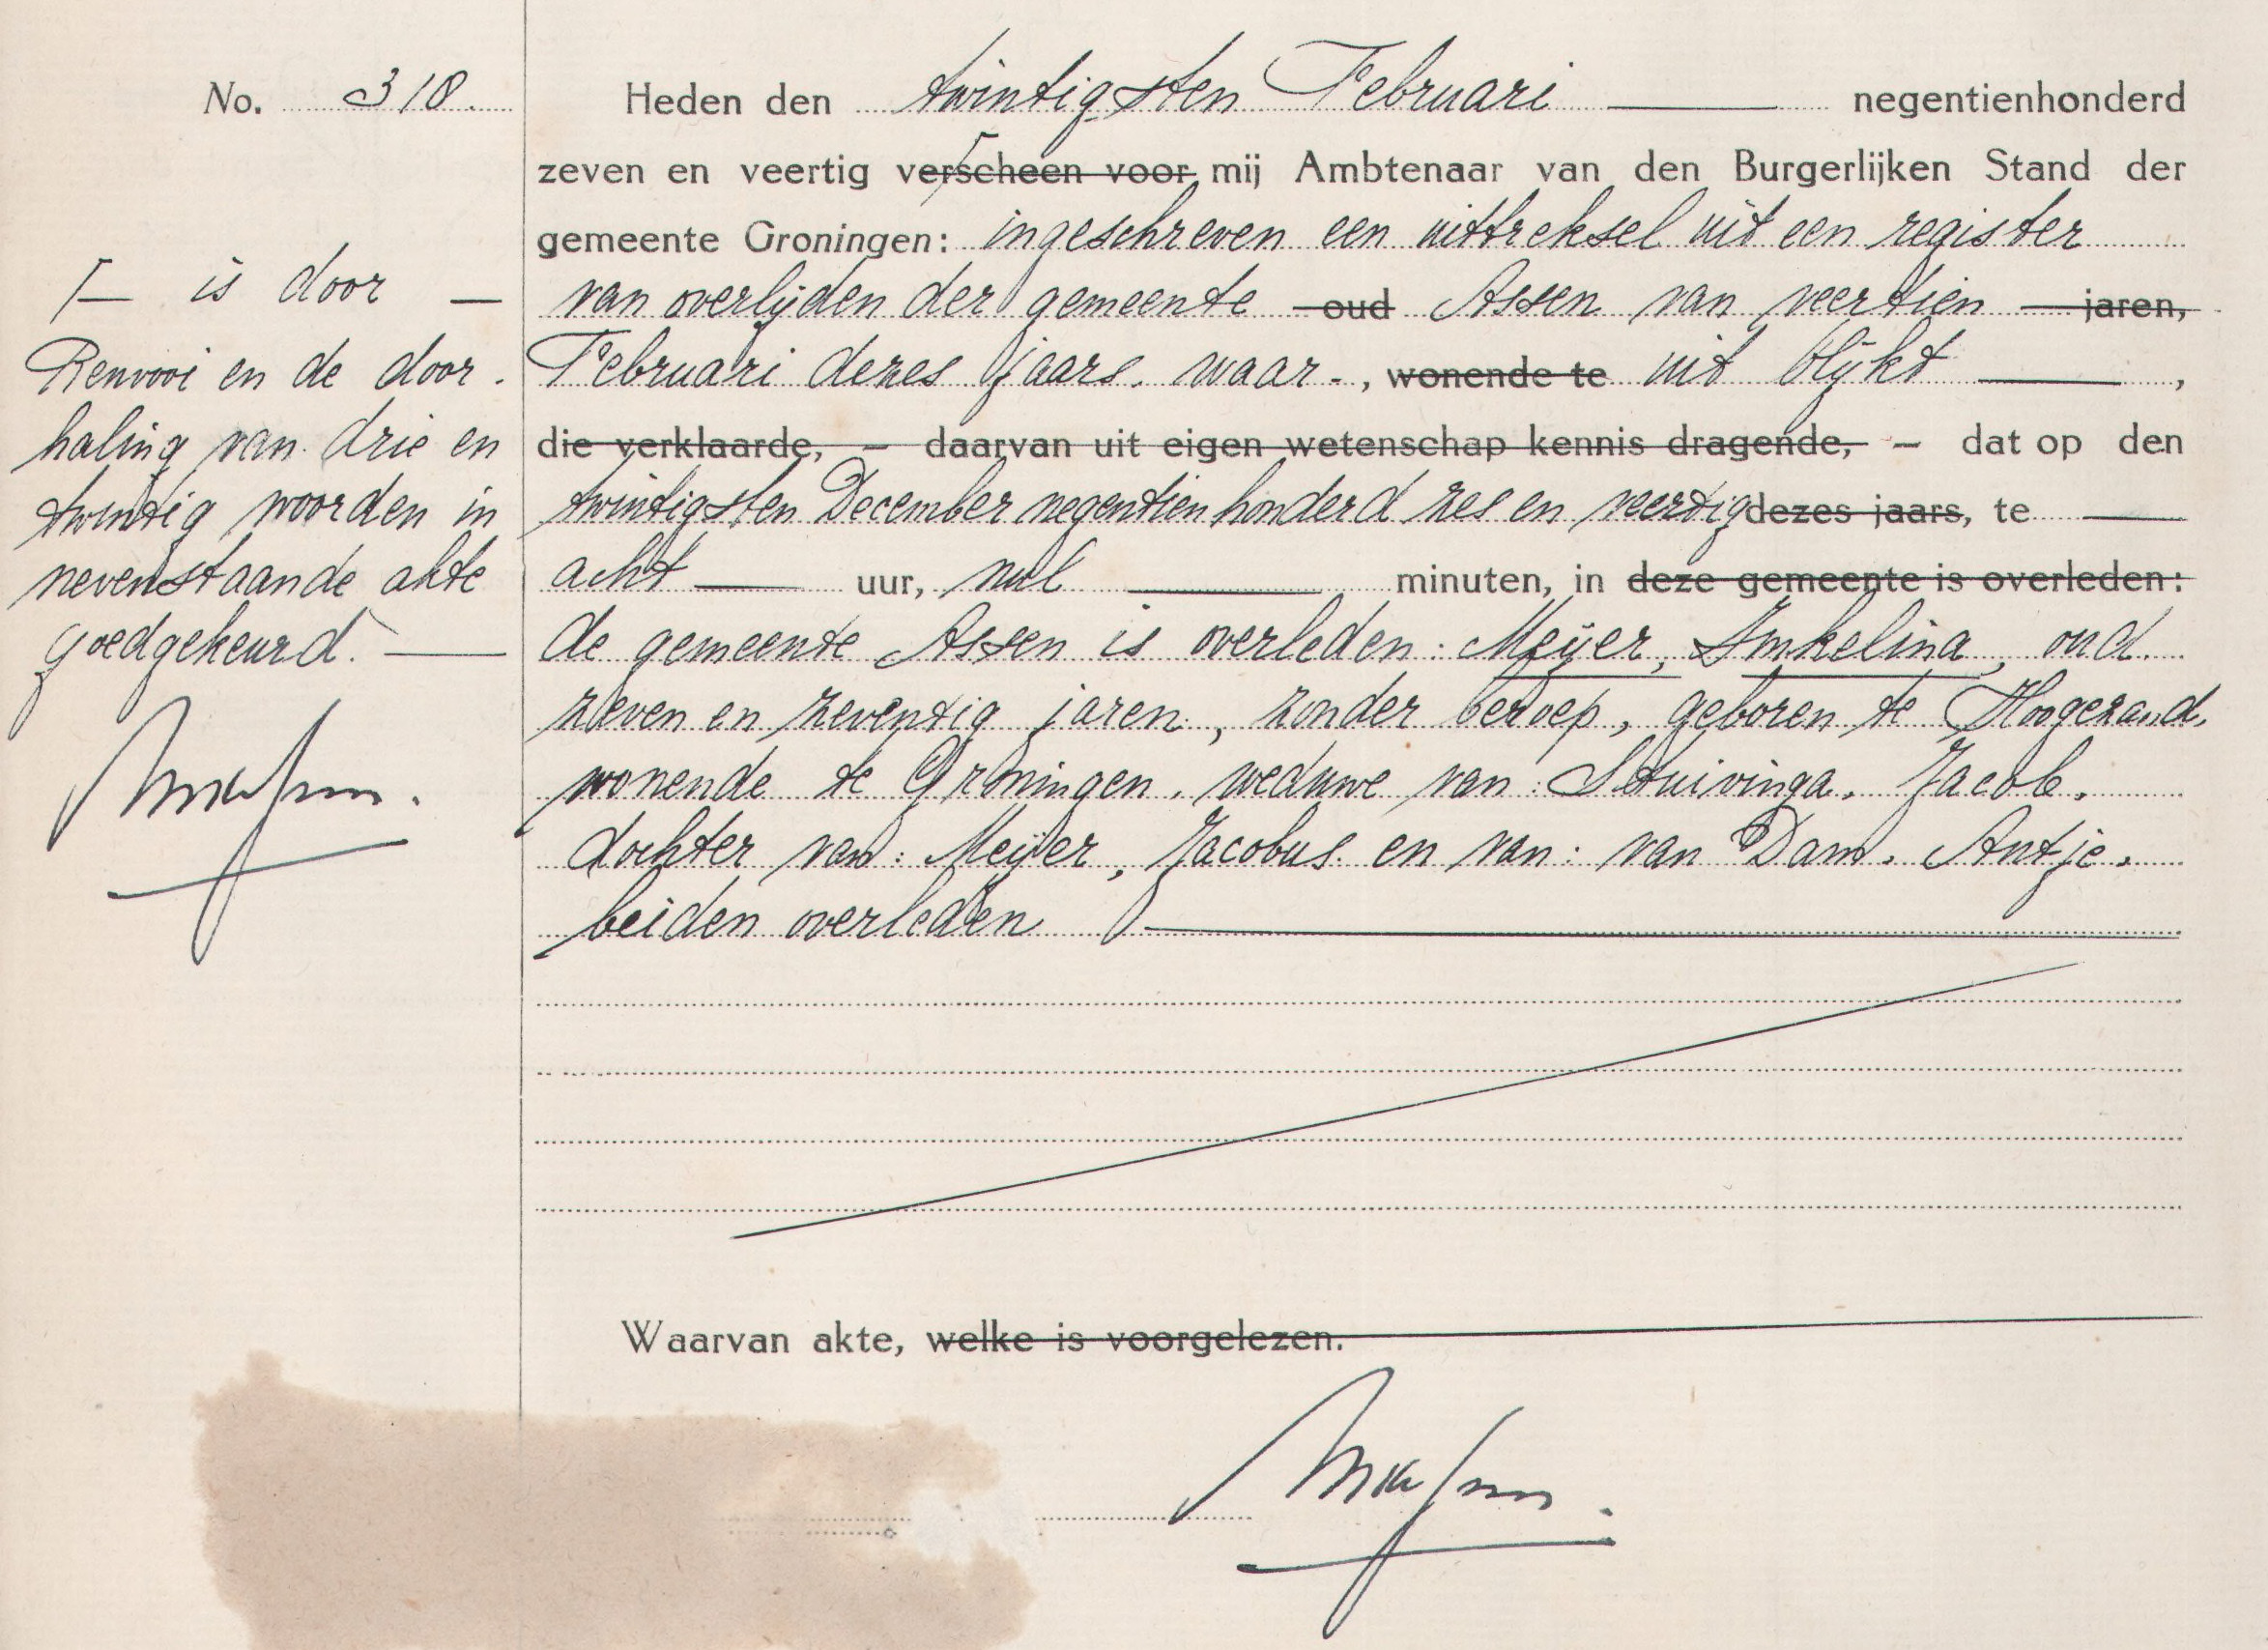 No. 318.
Heden den twintigsten Februari — negentienhonderd
zeven en veertig verscheen voor mij Ambtenaar van den Burgerlijken Stand der
gemeente Groningen: ingeschreven een uittreksel uit een register
van overlijden der gemeente oud Assen van veertien jaren,
Februari dezes jaars. waar-, wonende te uit blijkt —,
die verklaarde, – daarvan uit eigen wetenschap kennis dragende, – dat op den
twintigsten December negentienhonderd zes en veertig dezes jaars, te —
acht — uur, nul — minuten, in deze gemeente is overleden:
de gemeente Assen is overleden: Meijer, Imkelina, oud
zeven en zeventig jaren, zonder beroep, geboren te Hoogezand,
wonende te Groningen, weduwe van: Stuivinga, Jacob,
dochter van: Meijer, Jacobus en van: van Dam, Antje,
beiden overleden —
Waarvan akte, welke is voorgelezen.
Γ— is door —
Renvooi en de door-
haling van drie en
twintig woorden in
nevenstaande akte
goedgekeurd. —